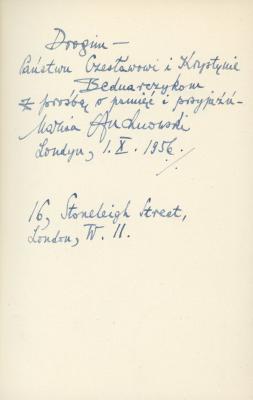 Drogim —
Państwu Czesławowi i Krystynie
Bednarczykom
z prośbą o pamięć i przyjaźń —
Londyn, 1.X.1956.
16, Stoneleigh Street,
London, W. 11.